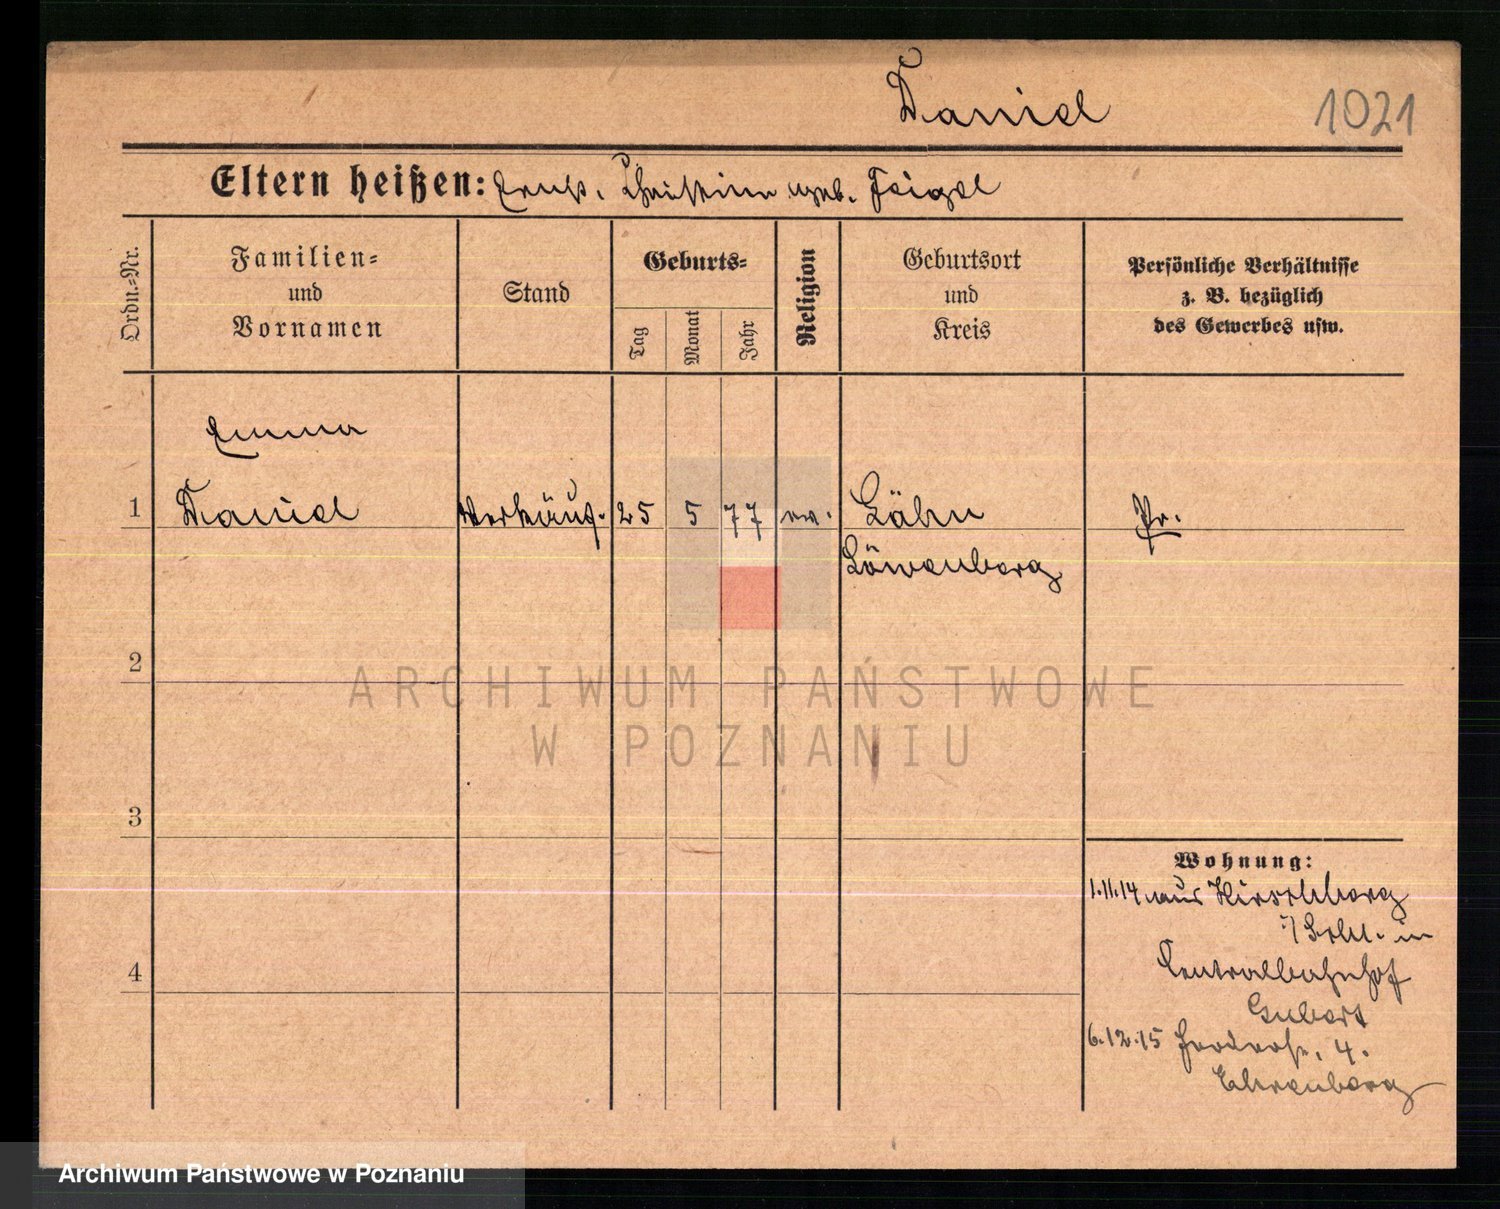 Daniel
1021
Eltern heißen: Ernst, Christine geb. Feigel
Ordn.-Nr.
Familien-
und
Vornamen
Stand
Geburts-
Tag
Monat
Jahr
Religion
Geburtsort
und
Kreis
Persönliche Verhältnisse
z. B. bezüglich
des Gewerbes usw.
Emma
1 Daniel Verkäuf. 25 5 77 ev. Lähn Pr.
Löwenberg
2
ARCHIWUM PAŃSTWOWE
W POZNANIU
3
Wohnung:
1.11.14 aus Hirschberg
i/Schl. in
4
Centralbahnhof
Gubert
6.12.15 4.
Ehrenberg
Archiwum Państwowe w Poznaniu